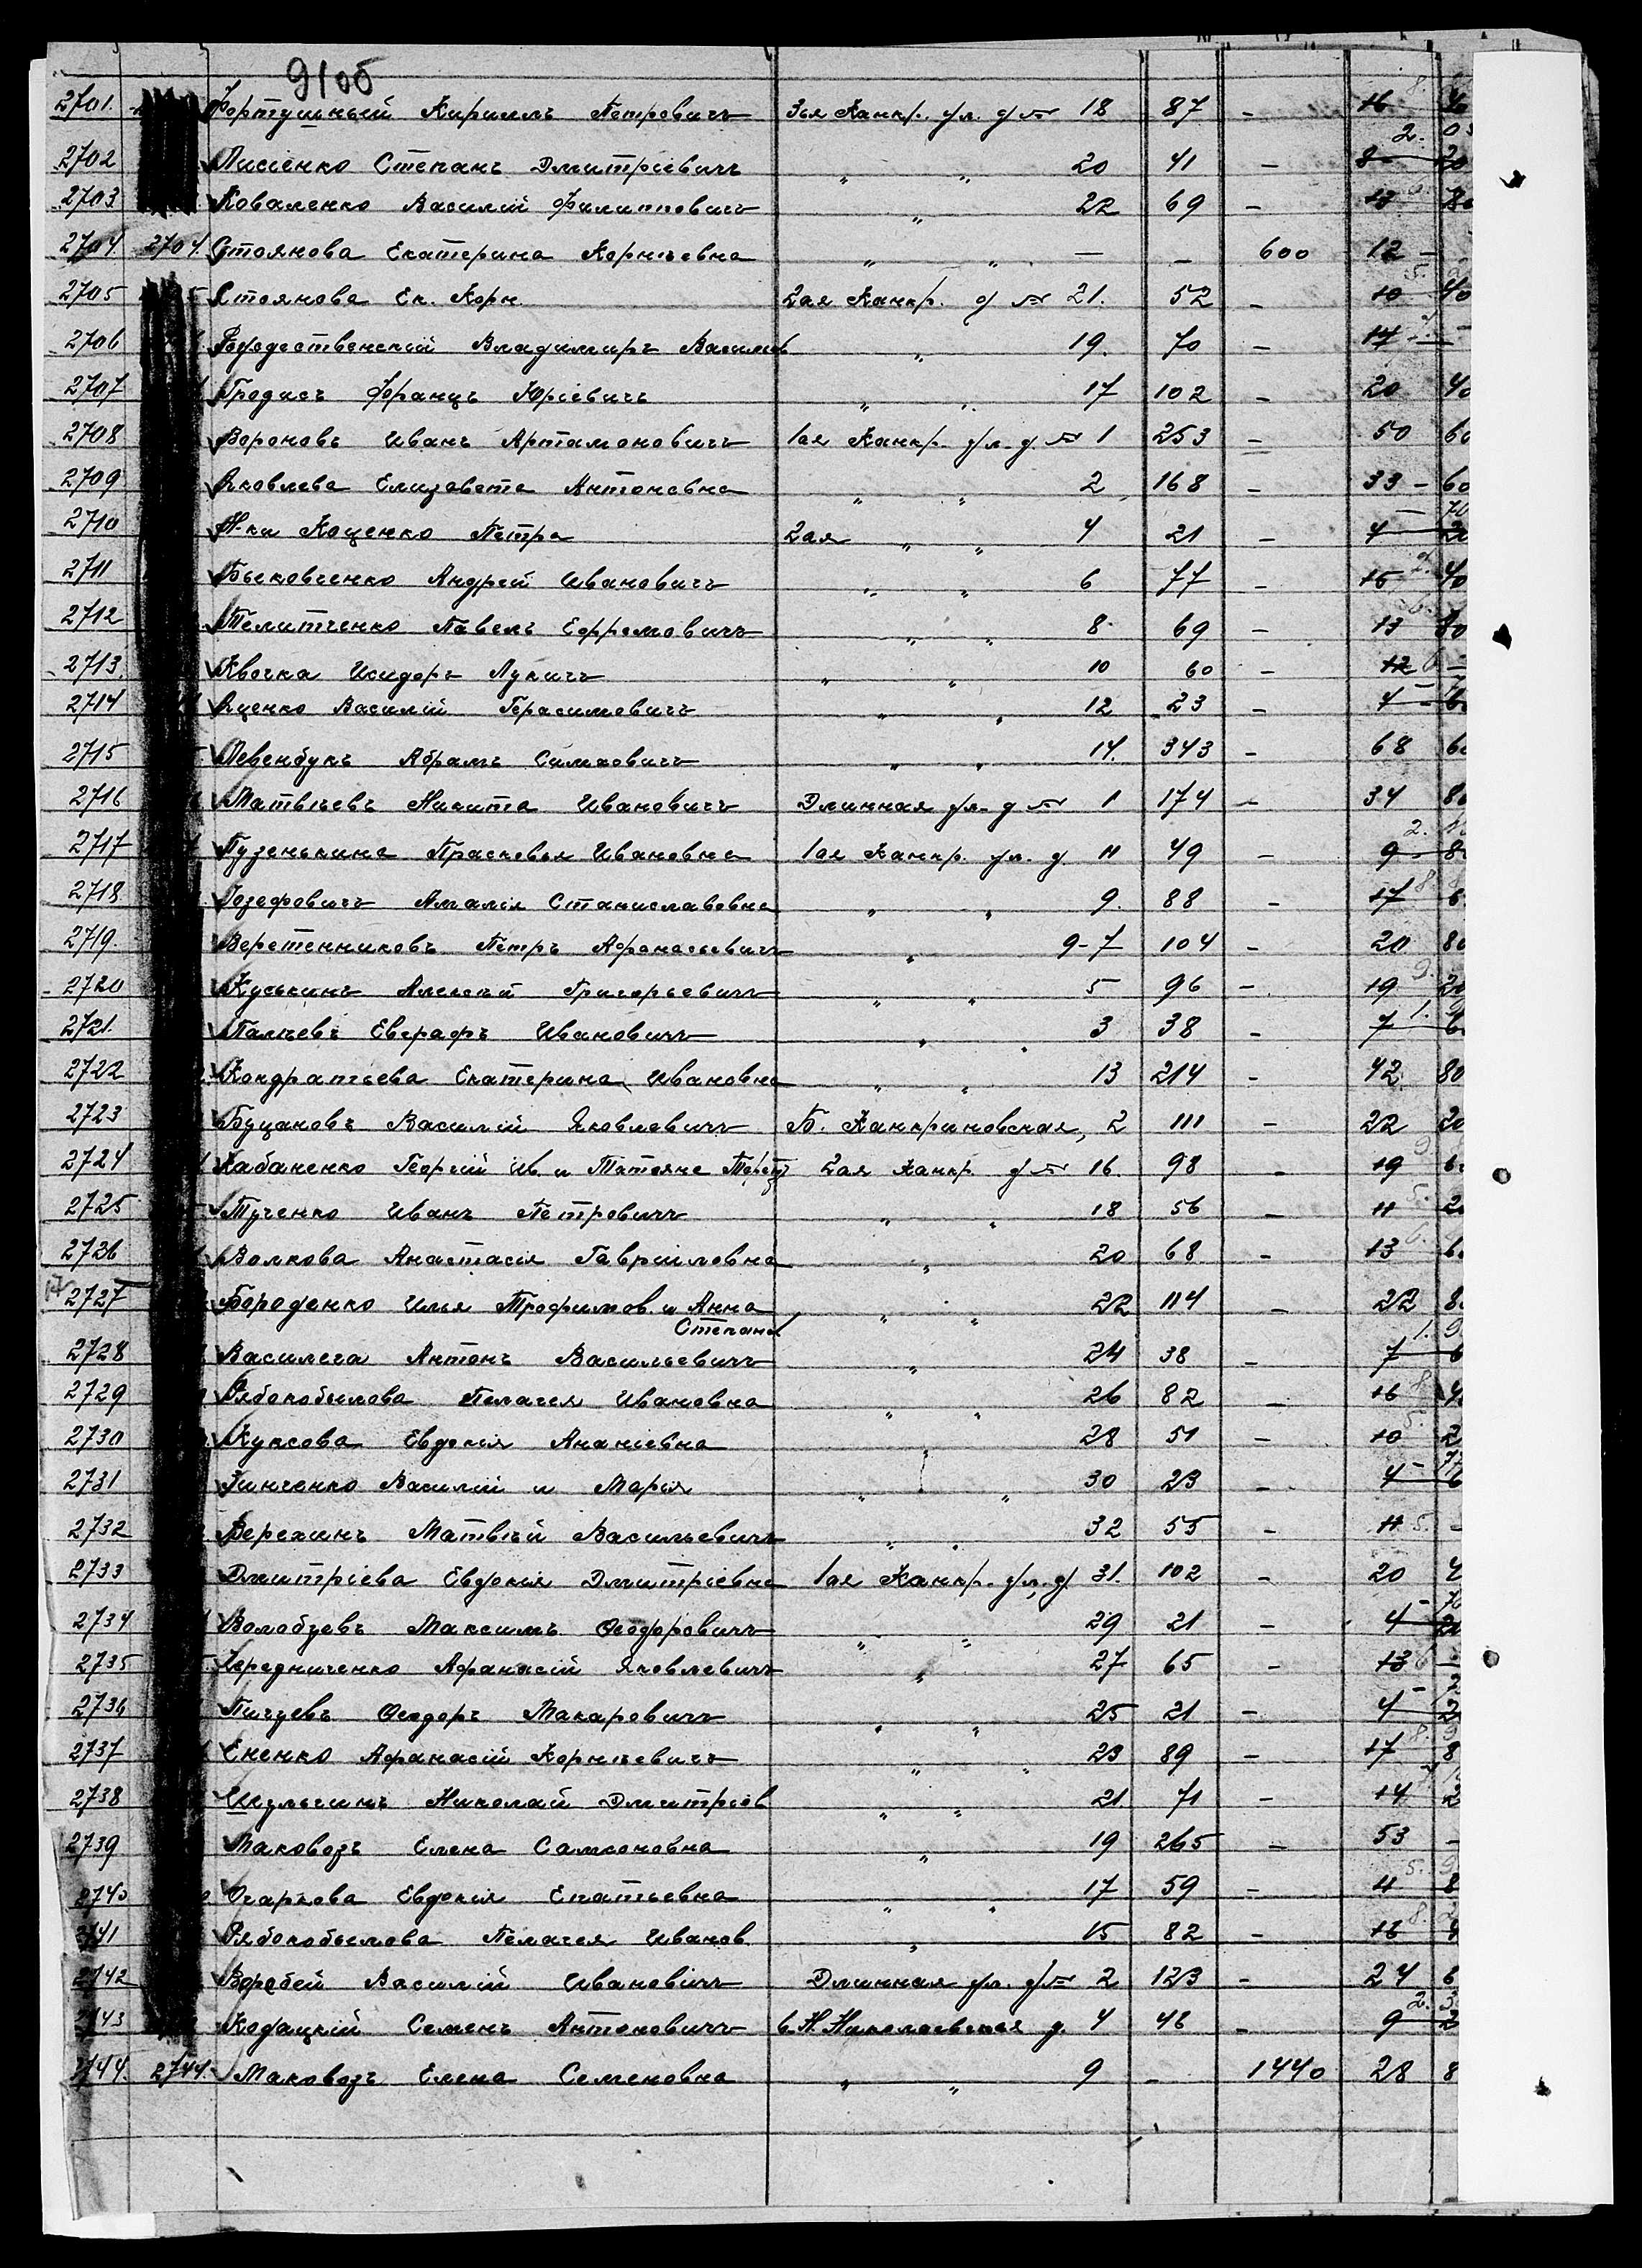 91об
2701. Фортушный Кириллъ Петровичъ 3ья Канкр. ул. д № 18 87 – 16 8. 40
2702 Лисіенко Степанъ Дмитріевичъ „ „ 20 41 – 8 2. 20
2703 Коваленко Василій Филипповичъ „ 22 69 – 13 80
2704. 2704. Стоянова Екатерина Корнѣевна „ „ – – 600 12 –
2705 Стоянова Ек. Корн. 2ая Канкр. д № 21. 52 – 10 5. 40
2706 Рождественскій Владимиръ Васильев „ 19. 70 – 14 –
2707 Гродисъ Францъ Юріевичъ „ „ 17 102 – 20 40
2708 Вороновъ Иванъ Артамоновичъ 1ая Канкр. ул. д. № 1 253 – 50 60
2709 Яковлева Елизавета Антоновна „ „ 2 168 – 33 – 60
2710 Н-ки Коценко Петра 2ая „ „ 4 21 – 4 – 20 70
2711 Быковченко Андрей Ивановичъ „ „ 6 77 – 15 7. 40
2712 Телитченко Павелъ Ефремовичъ „ „ 8 69 – 13 6. 80
2713. Квочка Исидоръ Лукичъ „ „ 10 60 – 12 6 –
2714 Яценко Василій Герасимовичъ „ „ 12 23 – 4 –
2715 Левенбукъ Абрамъ Симховичъ „ „ 14. 343 – 68 60
2716 Матвѣевъ Никита Ивановичъ Длинная ул. д № 1 174 – 34 80
2717 Пузенькина Прасковья Ивановна 1ая Канкр. ул. д. 11 49 – 9 2. 80
2718. Іозефовичъ Амалія Станиславовна „ „ 9. 88 – 17 8. 6
2719. Веретенниковъ Петръ Афанасьевичъ „ 9-7 104 – 20 80
2720 Куськинъ Алексѣй Григорьевичъ „ „ 5 96 – 19 9. 20
2721. Палѣевъ Евграфъ Ивановичъ „ „ 3 38 – 7 1. 6
2722 Кондратьева Екатерина Ивановна „ „ 13 214 – 42 80
2723 Буцановъ Василій Яковлевичъ Б. Канкриновская, 2 111 – 22 20
2724 Кабаненко Георгій Ив. и Татьяна 2ая Канкр. д № 16. 98 – 19 9 6
2725 Тученко Иванъ Петровичъ „ „ 18 56 – 11 5. 2
2726 Волкова Анастасія Гавриловна „ 20 68 – 13 6. 6
2727 Бороденко Илья Трофимов. и Анна „ „ 22 114 – 22 8
Степан
2728 Василега Антонъ Васильевичъ „ 24 38 – 7 1. 9 6
2729 Рябокобылова Пелагея Ивановна „ „ 26 82 – 16 8 4
2730 Куксова Евдокія Ананіевна „ 28 51 – 10 5. 2
2731 Зинченко Василій и Марія „ „ 30 23 – 4 – 6
2732 Верехинъ Матвѣй Васильевичъ „ „ 32 55 – 11 5. –
2733 Дмитріева Евдокія Дмитріевна 1ая Канкр. ул. д 31. 102 – 20 4
2734 Волобуевъ Максимъ Ѳеодоровичъ „ „ 29 21 – 4 – 20 70
2735 Чередниченко Афанасій Яковлевичъ „ 27 65 – 13 6 –
2736 Пичуевъ Ѳеодоръ Макаровичъ „ „ 25 21 – 4 – 2
2737 Ененко Афанасій Корнѣевичъ „ „ 23 89 – 17 8. 9 8
2738 Шульгинъ Николай Дмитріев „ „ 21 71 – 14 2
2739 Маковозъ Елена Самсоновна „ 19 265 – 53 –
2740 Огаркова Евдокія Епатьевна „ „ 17 59 – 11 5. 9 8
2741 Рябокобылова Пелагея Иванов „ 15 82 – 16 8. 4
2742 Воробей Василій Ивановичъ Длинная ул. д № 2 123 – 24 6
2743 Кодацкій Семенъ Антоновичъ б. Н. Николаевская д. 4 46 – 9 2. 3 2
2744. 2744. Маковозъ Елена Семеновна „ „ 9 – 1440 28 8